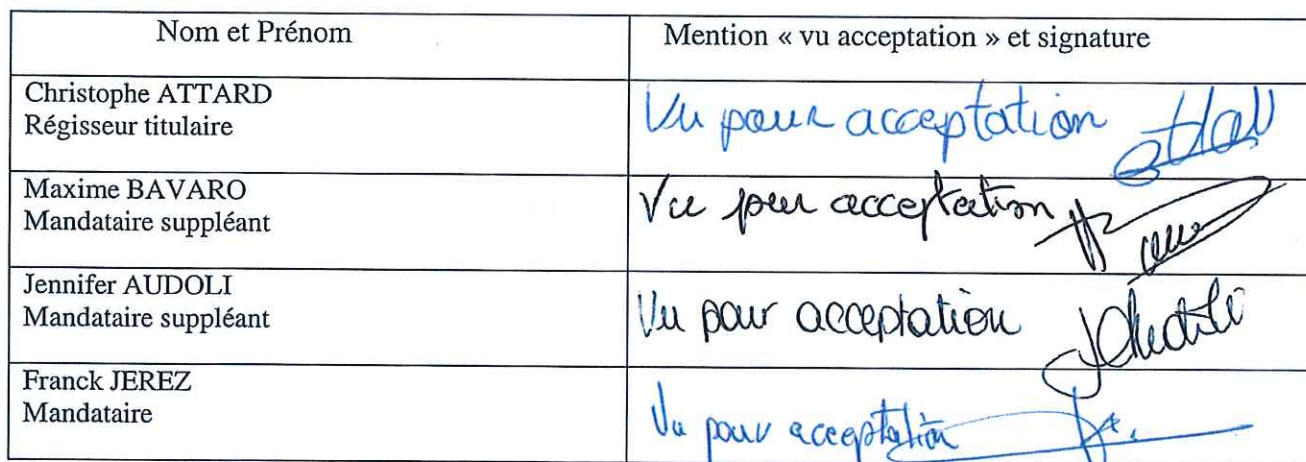 Nom et Prénom
Mention « vu acceptation » et signature
Christophe ATTARD
Régisseur titulaire
Vu pour acceptation
Maxime BAVARO
Mandataire suppléant
Vu pour acceptation
Jennifer AUDOLI
Mandataire suppléant
Vu pour acceptation
Franck JEREZ
Mandataire
Vu pour acceptation